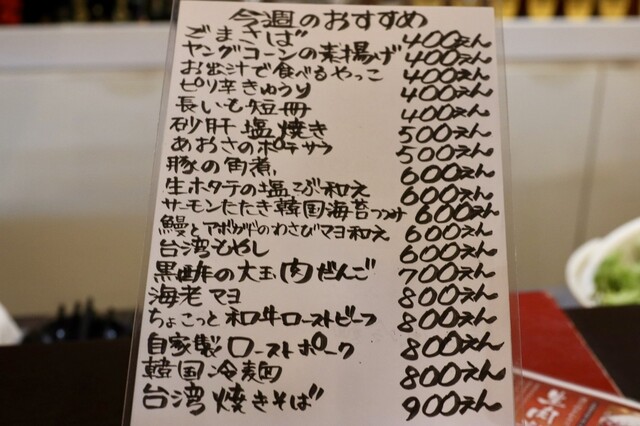 今週のおすすめ
ごまさば 400えん
ヤングコーンの素揚げ 400えん
お出汁で食べるやっこ 400えん
ピリ辛きゅうり 400えん
長いも短冊 400えん
砂肝塩焼き 500えん
あおさのポテサラ 500えん
豚の角煮 600えん
生ホタテの塩こぶ和え 600えん
サーモンたたき韓国海苔つつみ 600えん
鰻とアボガドのわさびマヨ和え 600えん
台湾もやし 600えん
黒酢の大玉肉だんご 700えん
海老マヨ 800えん
ちょこっと和牛ローストビーフ 800えん
自家製ローストポーク 800えん
韓国冷麺 800えん
台湾焼きそば 900えん